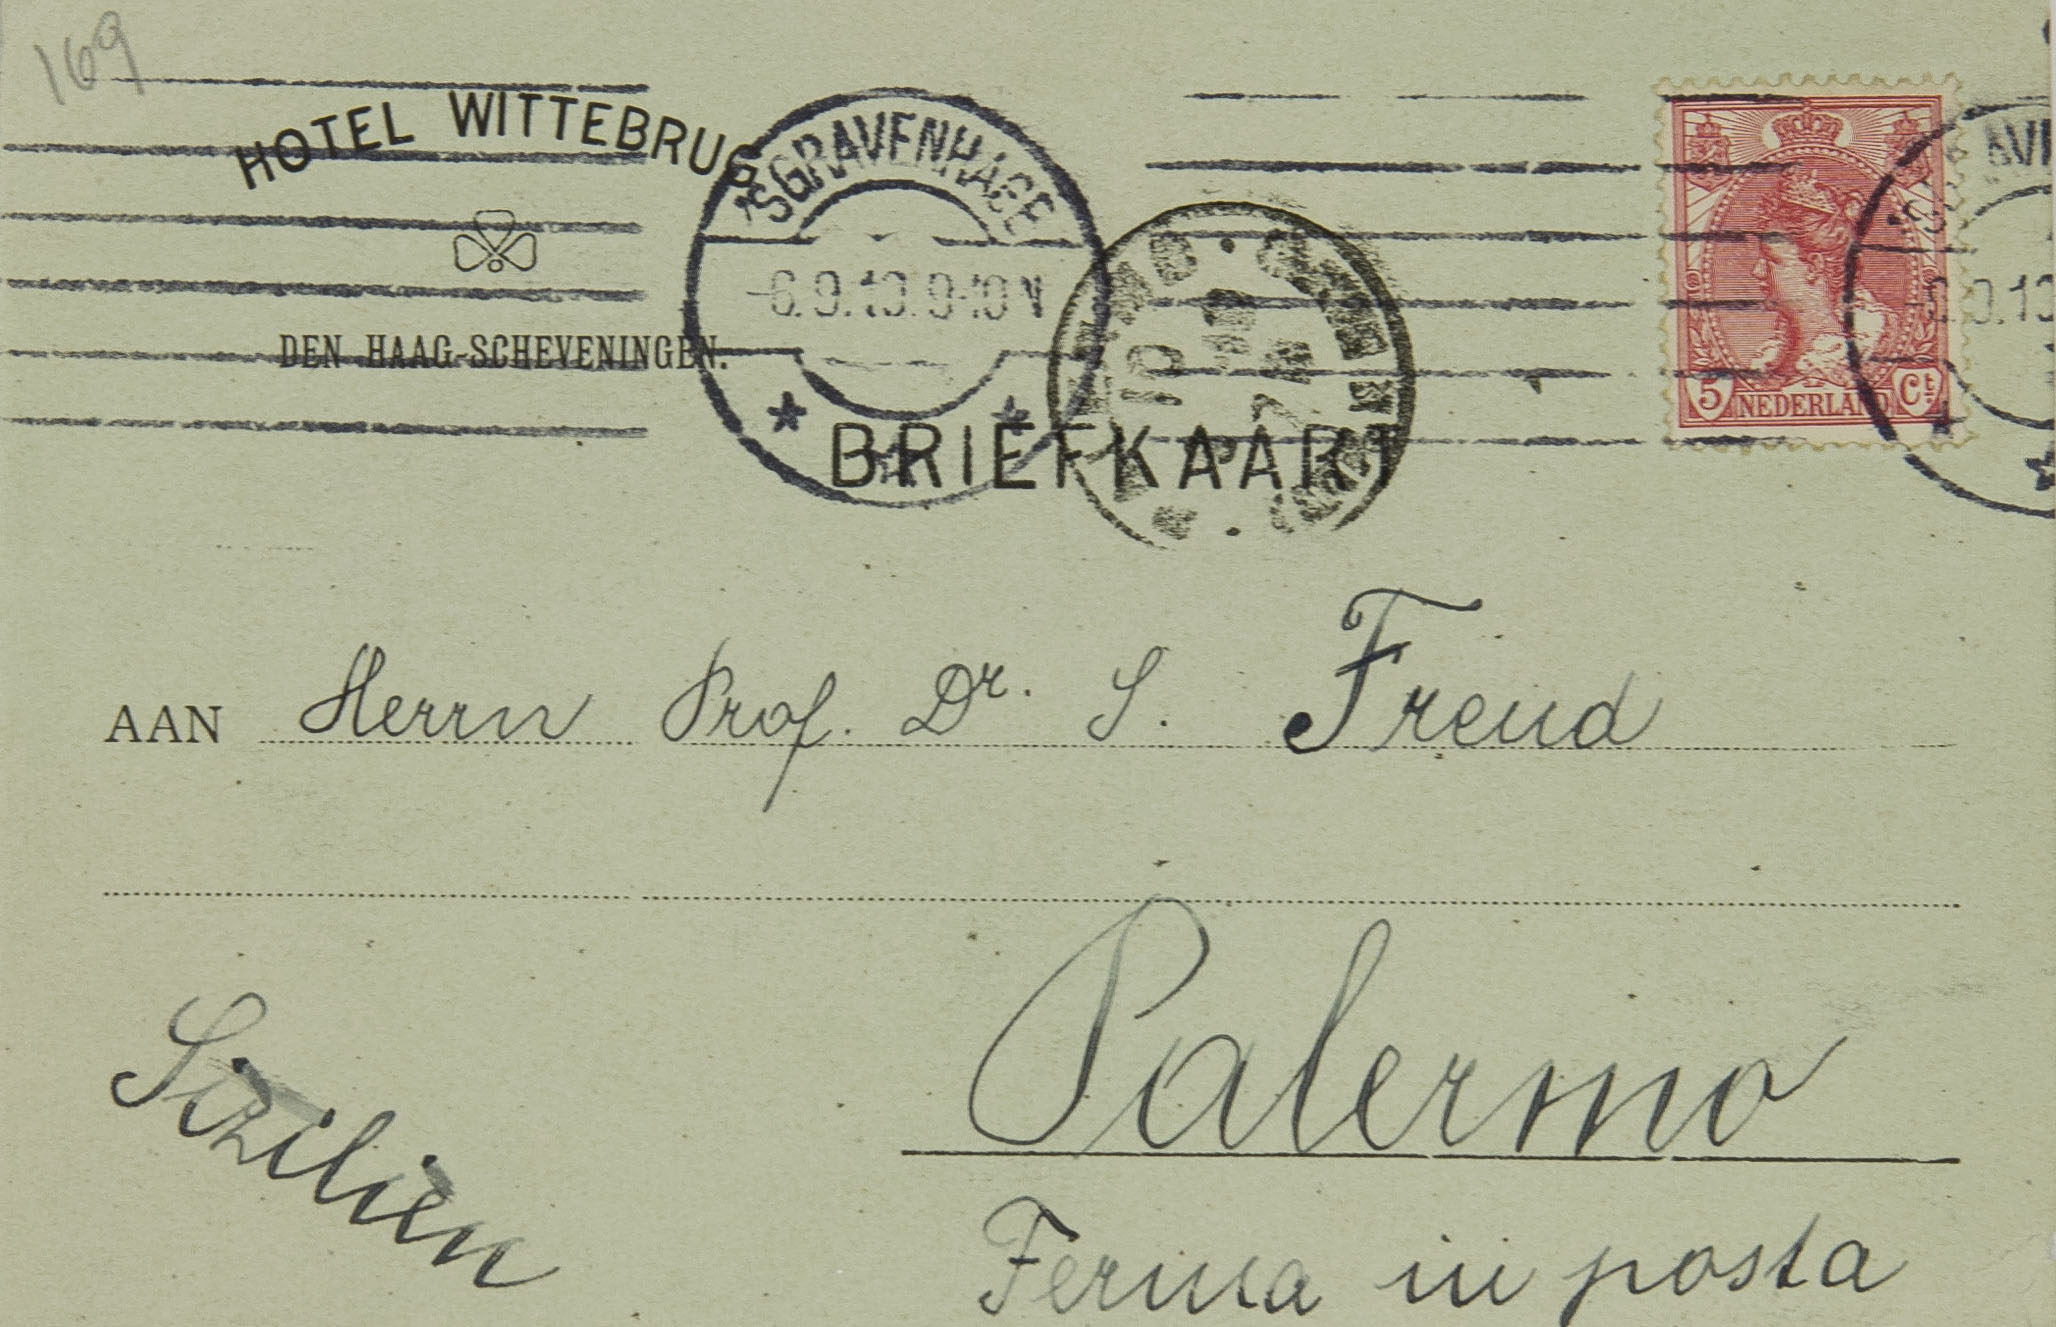 169
HOTEL WITTEBRUG
DEN HAAG-SCHEVENINGEN.
'SGRAVENHAGE
-6.9.10.9-10N
5 Ct
NEDERLAND
BRIEFKAART
AAN Herrn Prof. Dr. S. Freud
Palermo
Sizilien
Ferma in posta